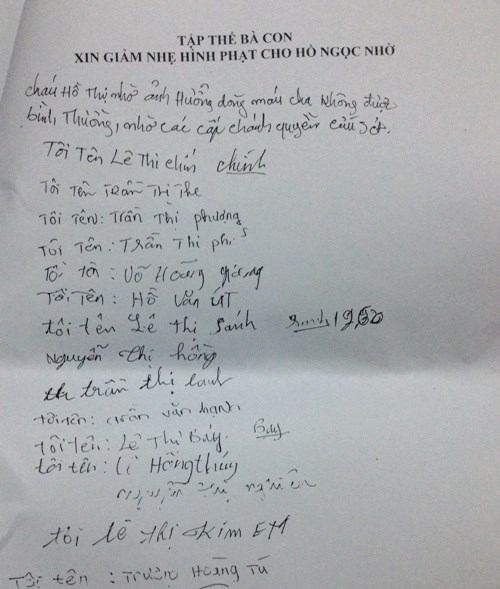 TẬP THỂ BÀ CON
XIN GIẢM NHẸ HÌNH PHẠT CHO HỒ NGỌC NHỜ
cháu Hồ Thị nhờ ảnh Hưởng dòng máu cha không được
bình Thường, nhờ các cấp chánh quyền cứu sét.
Tôi Tên Lê Thị chín chính
Tôi Tên Trần Thị The
Tôi Tên: Trần Thị phượng
Tôi Tên: Trần Thị
Tôi tên: Võ Hoàng
Tôi Tên: Hồ Văn ÚT
tôi tên Lê thị Sánh sinh 1950
Nguyễn thị hồng
trần thị
tôi tên: trần văn hạnh
tôi tên: Lê Thị Bảy. Bảy
tôi tên: Hồng thúy
tôi lê thị Kim EM
Tôi tên: Trương Hoàng Tú